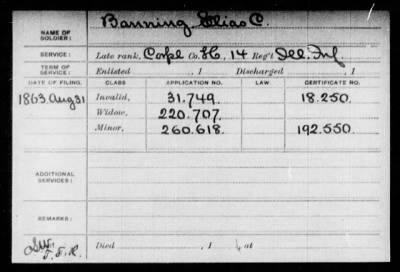 NAME OF SOLDIER: Banning, Elias C.
SERVICE: Late rank, Corpl Co. H, 14 Reg't Ill. Inf
TERM OF SERVICE: Enlisted , 1 Discharged , 1
DATE OF FILING. CLASS APPLICATION NO. LAW. CERTIFICATE NO.
1863 Aug 31 Invalid, 31.749. 18.250.
Widow, 220.707.
Minor, 260.618. 192.550.
ADDITIONAL SERVICES:
REMARKS:
Died , 1 at
F. F. R.